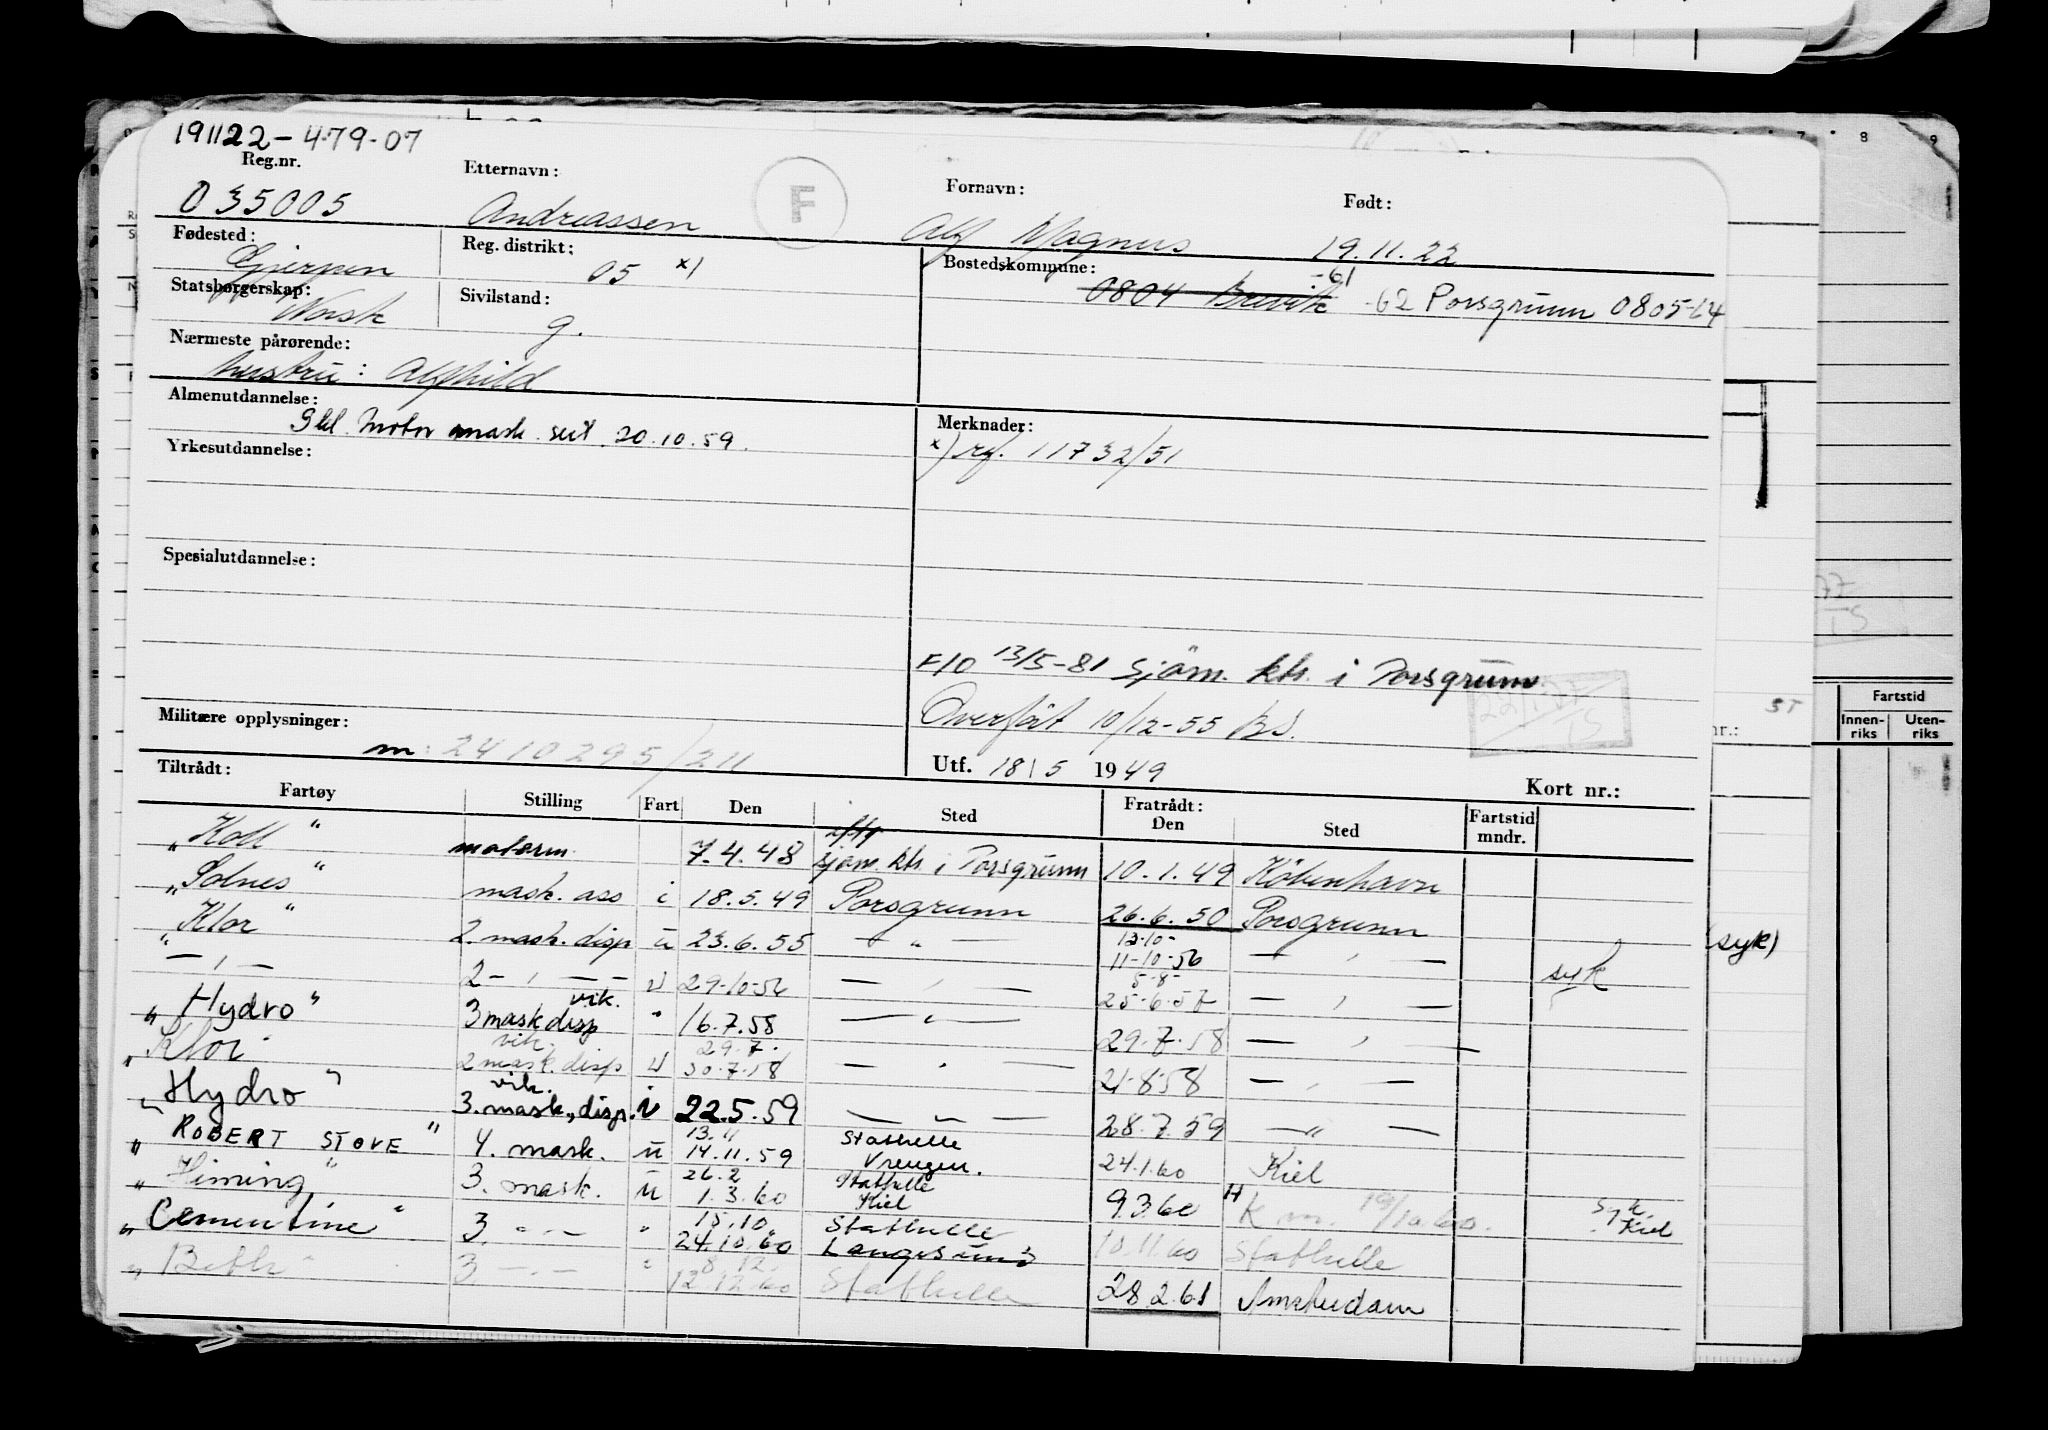 191122-479-07
Reg.nr. Etternavn: F Fornavn: Født:
035005 Andreassen Alf Magnus 19.11.22
Fødested: Reg. distrikt: Bostedskommune:
Gjerpen 05 x) 0804 Brevik -61 -62 Porsgrunn 0805-64
Statsborgerskap: Sivilstand:
Norsk g.
Nærmeste pårørende:
hustru: Alfhild
Almenutdannelse: Merknader:
9 kl. motor mask. sert. 20.10.59. x) rf. 11732/51
Yrkesutdannelse:
Spesialutdannelse:
F/O 13/5-81 Sjöm. ktr. i Porsgrunn.
Militære opplysninger: Overført 10/12-55 BS.
m: 2410295/211
Utf. 18/5 1949
Tiltrådt: Fratrådt: Kort nr.:
Fartøy Stilling Fart Den Sted Den Sted Fartstid mndr.
"Koll" motorm. 7.4.48 sjøm. ktr. i Porsgrunn 10.1.49 København
"Solnes" mask. ass i 18.5.49 Porsgrunn 26.6.50 Porsgrunn
"Klor" 2. mask. disp u 23.6.55 — " — 12-10- 11-10-56 — , — syk
— , — 2 — , — — u 29-10-56 — , — 5-8- 25-6-57 — , —
"Hydro" 3 mask disp vik. " 16.7.58 — " — 29.7.58 — , —
"Klor" 2 mask. disp vik. u 29.7. 30.7.58 — " — 21-8-58 — , —
"Hydro" 3. mask. disp. vik. i 22.5.59 — " — 28.7.59 — " —
"ROBERT STOVE" 4. mask. u 13.11 14.11.59 Stathelle Vrengen. 24.1.60 Kiel
"Himing" 3. mask. u 26.2 1.3.60 Stathelle Kiel 9.3.60 Syk. Kiel
"Cementine" 3. — " — " 15.10. 24.10.60 Stathelle Langesund 10.11.60 Stathelle
"Beth" 3 — . — " 8.12. 12.12.60 Stathelle 28.2.61 Amsterdam
(syk)
Fartstid
Innen-riks Uten-riks